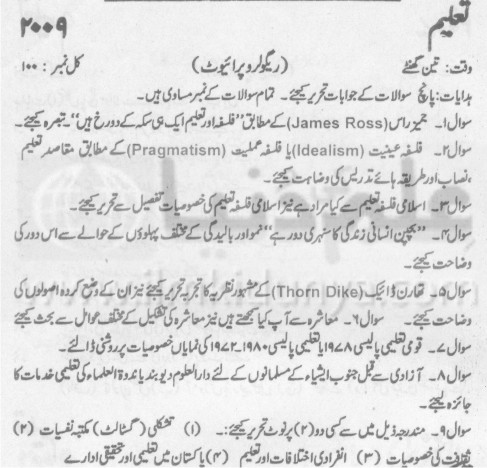 تعلیم ۲۰۰۹
وقت: تین گھنٹے (ریگولر و پرائیوٹ) کل نمبر: ۱۰۰
ہدایات: پانچ سوالات کے جوابات تحریر کیجئے۔ تمام سوالات کے نمبر مساوی ہیں۔
سوال۱۔ جمیز راس (James Ross) کے مطابق "فلسفہ اور تعلیم ایک ہی سکہ کے دو رخ ہیں"۔ تبصرہ کیجئے۔
سوال۲۔ فلسفہ عینیت (Idealism) یا فلسفہ عملیت (Pragmatism) کے مطابق مقاصد تعلیم
،نصاب اور طریقہ ہائے تدریس کی وضاحت کیجئے۔
سوال۳۔ اسلامی فلسفہ تعلیم سے کیا مراد ہے نیز اسلامی فلسفہ تعلیم کی خصوصیات تفصیل سے تحریر کیجئے۔
سوال۴۔ "بچپن انسانی زندگی کا سنہری دور ہے" نمو اور بالیدگی کے مختلف پہلوؤں کے حوالے سے اس دور کی
وضاحت کیجئے۔
سوال۵۔ تھارن ڈائیک (Thorn Dike) کے مشہور نظریہ کا تجزیہ تحریر کیجئے نیز ان کے وضع کردہ اصولوں کی
وضاحت کیجئے۔ سوال۶۔ معاشرہ سے آپ کیا سمجھتے ہیں نیز معاشرہ کی تشکیل کے مختلف عوامل سے بحث کیجئے
سوال۷۔ قومی تعلیمی پالیسی ۱۹۷۸ یا تعلیمی پالیسی ۱۹۸۰۔۱۹۷۲ کی نمایاں خصوصیات پر روشنی ڈالئے۔
سوال۸۔ آزادی سے قبل جنوب ایشیاء کے مسلمانوں کے لئے دارالعلوم دیوبند یا ندوۃ العلماء کی تعلیمی خدمات کا
جائزہ لیجئے۔
سوال۹۔ مندرجہ ذیل میں سے کسی دو (۲) پر نوٹ تحریر کیجئے:۔ (۱) تشکلی (گسٹالٹ) مکتبہ نفسیات (۲)
ثقافت کی خصوصیات (۳) انفرادی اختلافات اور تعلیم (۴) پاکستان میں تعلیمی اور تحقیقی ادارے